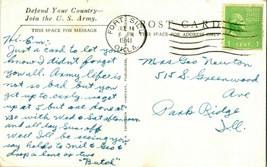 Defend Your Country—
Join the U. S. Army.
THIS SPACE FOR MESSAGE
POST CARD
THIS SPACE FOR ADDRESS ONLY
FORT SILL
JUL 14
PM
1941
OKLA.
1 CENT 1
Hi Em:
Just a card to let you
know I didn't forget
you all. Army life is
not so bad but you
get up to early, wages
up at 5 but one donest
so with Wed & Sat afternoon
and all day Sun off.
Well I'll be seeing you
say hello to Mil & Geo &
drop a line or two
"Butch"
Mrs Geo Newton
515 S Greenwood
Ave
Park Ridge
Ill.